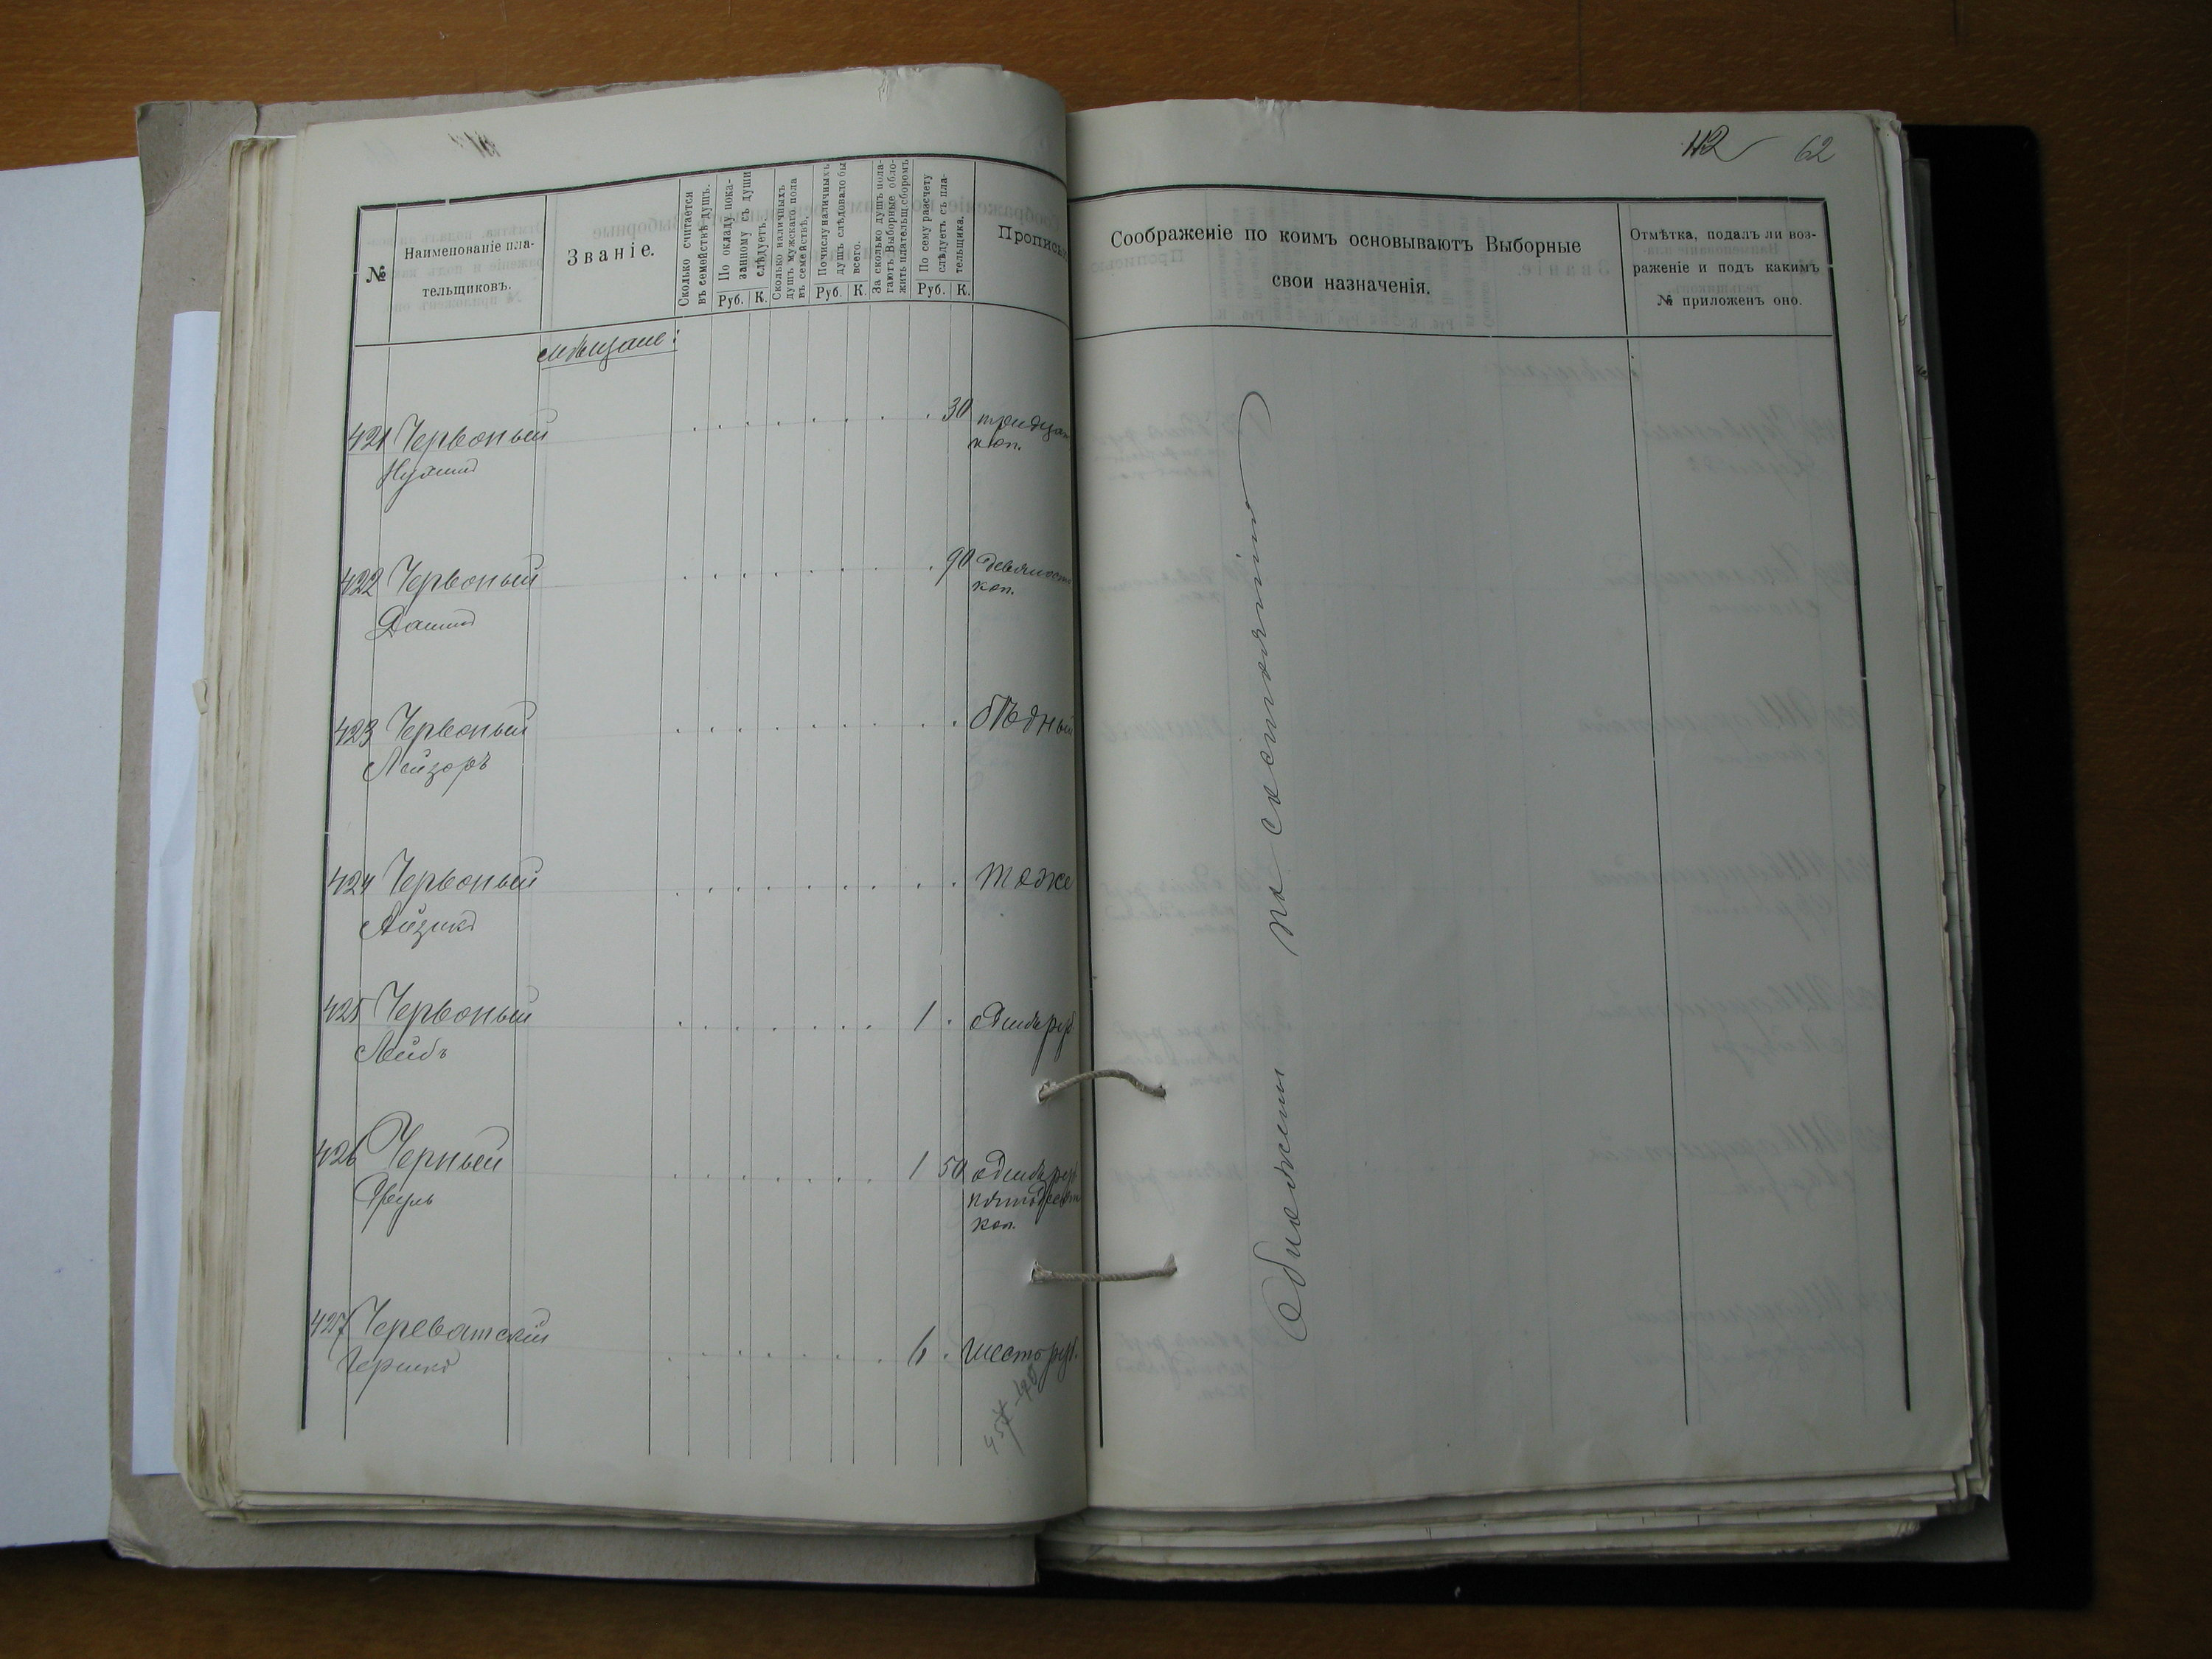 112 62
№
Наименованіе пла-
тельщиковъ.
Званіе.
Сколько считается
въ семействѣ душъ.
По окладу пока-
занному съ души
слѣдуетъ
Руб. К.
Сколько наличныхъ
душъ мужскаго пола
въ семействѣ.
По числу наличныхъ
душъ слѣдовало бы
всего.
Руб. К.
За сколько душъ пола-
гаютъ Выборные обло-
жить плательщ. сборомъ
По сему разсчету
слѣдуетъ съ пла-
тельщика.
Руб. К.
Прописью
Соображеніе по коимъ основываютъ Выборные
свои назначенія.
Отмѣтка, подалъ ли воз-
раженіе и подъ какимъ
№ приложенъ оно.
мѣщане:
421 Червоный 30 тридцат
Нухимъ коп.
422 Червоный 90 девяносто
коп.
423 Червоный бѣдный
Лейзоръ
424 Червоный тоже
Айзикъ
425 Червоный 1 одинъ руб
Лейбъ
426 Черный 1 50 одинъ руб
Сруль пятьдесят
коп.
427 Череватскій 6 шесть руб.
Гершко
Обложены по состоянію